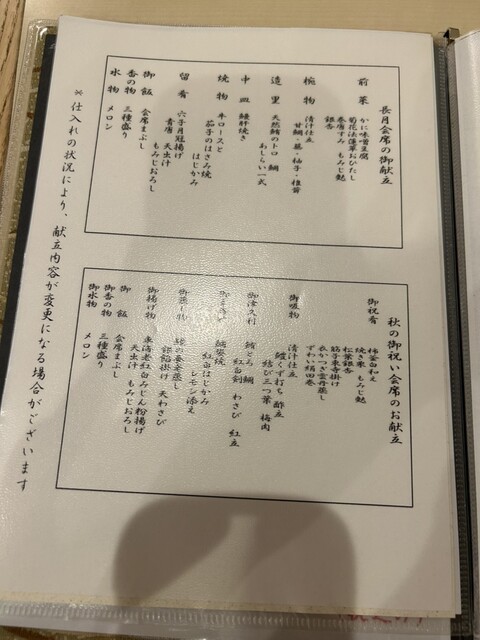 長月会席の御献立
前菜 かに味噌豆腐
菊花法蓮草おひたし
巻唐すみ もみじ麩
銀杏
椀物 清汁仕立
甘鯛・蕪・柚子・椎茸
造里 天然鮪のトロ 鯛
あしらい一式
中皿 鰻肝焼き
焼物 牛ロースと
茄子のはさみ焼
はじかみ
留肴 六子月冠揚げ
青唐 天出汁
もみじおろし
御飯 会席まぶし
香の物 三種盛り
水物 メロン
秋の御祝い会席のお献立
御祝肴 柿釜白和え
焼き栗 もみじ麩
松葉銀杏
筋子東寺掛け
衣かつぎ雲丹蒸し
ずわい絹田巻
御吸物 清汁仕立
鱧くず打ち 酢立
結び三つ葉 梅肉
御津久利 鮪とろ 鯛
紅白剣 わさび 紅立
鯛姿焼
紅白はじかみ
レモン添え
銀餡掛け 天わさび
御揚げ物 車海老紅白みじん粉揚げ
天出汁 もみじおろし
御飯 会席まぶし
御香の物 三種盛り
御水物 メロン
※仕入れの状況により、献立内容が変更になる場合がございます